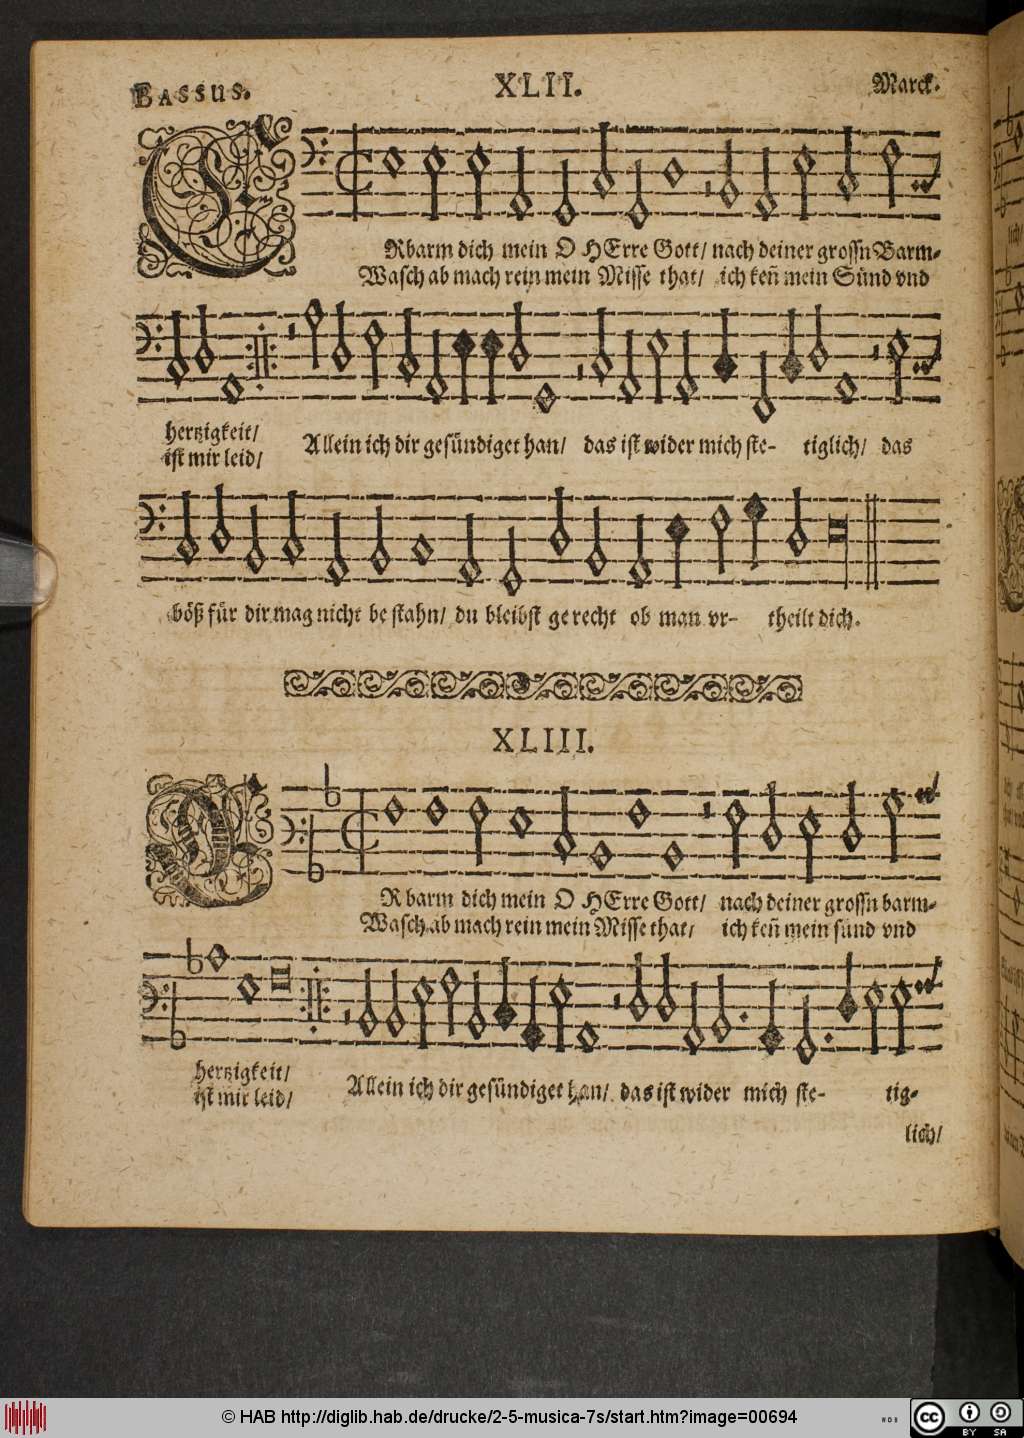 BASSUS.
XLII.
Marck.
ERbarm dich mein O HErre Gott/ nach deiner grossn Barm-
Wasch ab mach rein mein Misse that/ ich keñ mein Sünd vnd
hertzigkeit/
ist mir leid/
Allein ich dir gesündiget han/ das ist wider mich ste- tiglich/ das
böß für dir mag nicht be stahn/ du bleibst ge recht ob man vr- theilt dich.
XLIII.
ER barm dich mein O HErre Gott/ nach deiner grossn barm-
Wasch ab mach rein mein Misse that/ ich keñ mein sünd vnd
hertzigkeit/
ist mir leid/
Allein ich dir gesündiget han/ das ist wider mich ste- tig-
lich/
© HAB http://diglib.hab.de/drucke/2-5-musica-7s/start.htm?image=00694
WDB
cc
BY SA